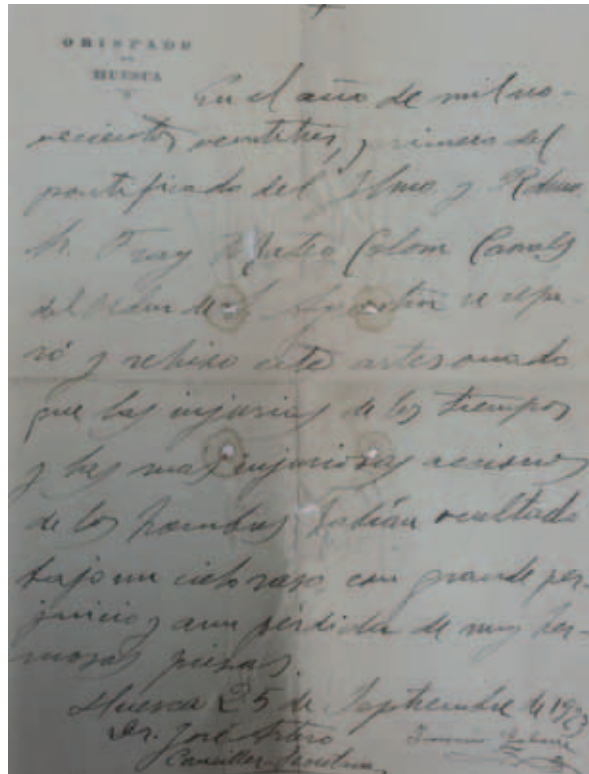 OBISPADO
DE
HUESCA
En el año de mil no-
vecientos ventitres, y primero del
pontificado del Ilmo. y Rdmo.
Sr. Fray Mateo Colom Canals
del Orden de S. Agustín se repa-
ró y rehizo este artesonado
que las injurias de los tiempos
y las mas injuriosas acciones
de los hombres habían ocultado
bajo un cielo raso, con grande per-
juicio y aun pérdida de muy her-
mosas piezas.
Huesca 25 de Septiembre de 1923
Dr. José Artero
Canciller Secretario